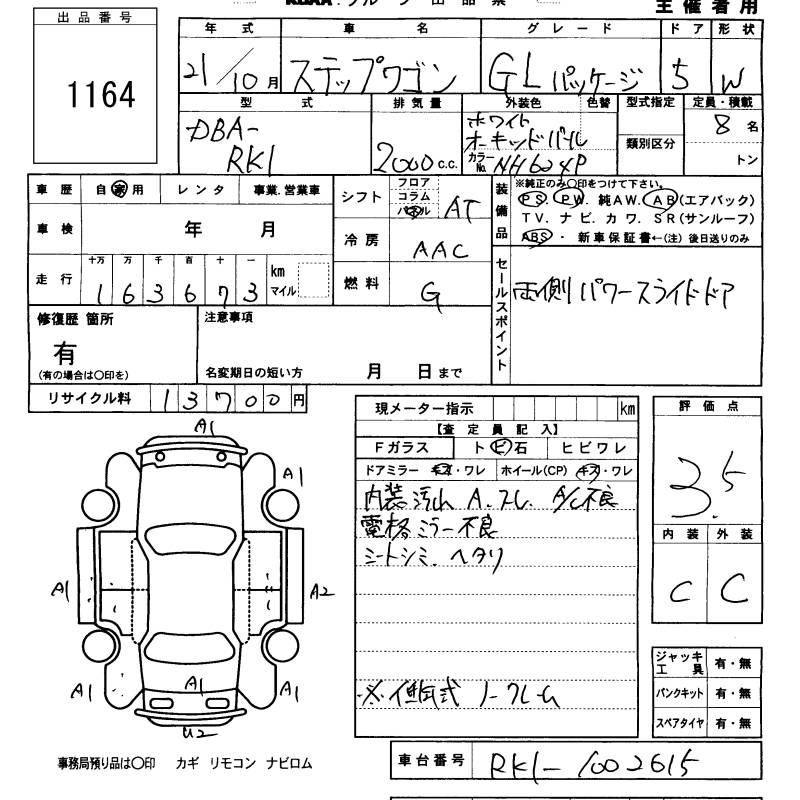 出品番号
1164
主催者用
年式 車名 グレード ドア 形状
21/10月 ステップワゴン GLパッケージ 5 W
型式 排気量 外装色 色替 型式指定 定員・積載
DBA-
RK1
2000c.c.
ホワイト
オーキッドパール
カラーNo. NH624P
類別区分
8名
トン
車歴 自家用 レンタ 事業.営業車
車検 年 月
走行 十万 万 千 百 十 一
1 6 3 6 7 3 km
マイル
シフト フロア
コラム
パネル
AT
冷房 AAC
燃料 G
装備品
※純正のみ○印をつけて下さい。
PS・PW.純AW.AB(エアバック)
TV.ナビ.カワ.SR(サンルーフ)
ABS・新車保証書←(注)後日送りのみ
セールスポイント
両側パワースライドドア
修復歴 箇所
有
(有の場合は○印を)
注意事項
名変期日の短い方 月 日まで
リサイクル料 13700円
現メーター指示 km
【査定員記入】
Fガラス ト ビ 石 ヒビワレ
ドアミラー キズ・ワレ ホイール(CP) キズ・ワレ
内装汚れ A.スレ A/C不良
電格ミラー不良
シートシミ.ヘタリ
評価点
3.5
内装 外装
C C
A1
A1
A1
A2
A1
A1
A1
U2
ジャッキ
工具 有・無
パンクキット 有・無
スペアタイヤ 有・無
車台番号 RK1-1002615
事務局預り品は○印 カギ リモコン ナビロム